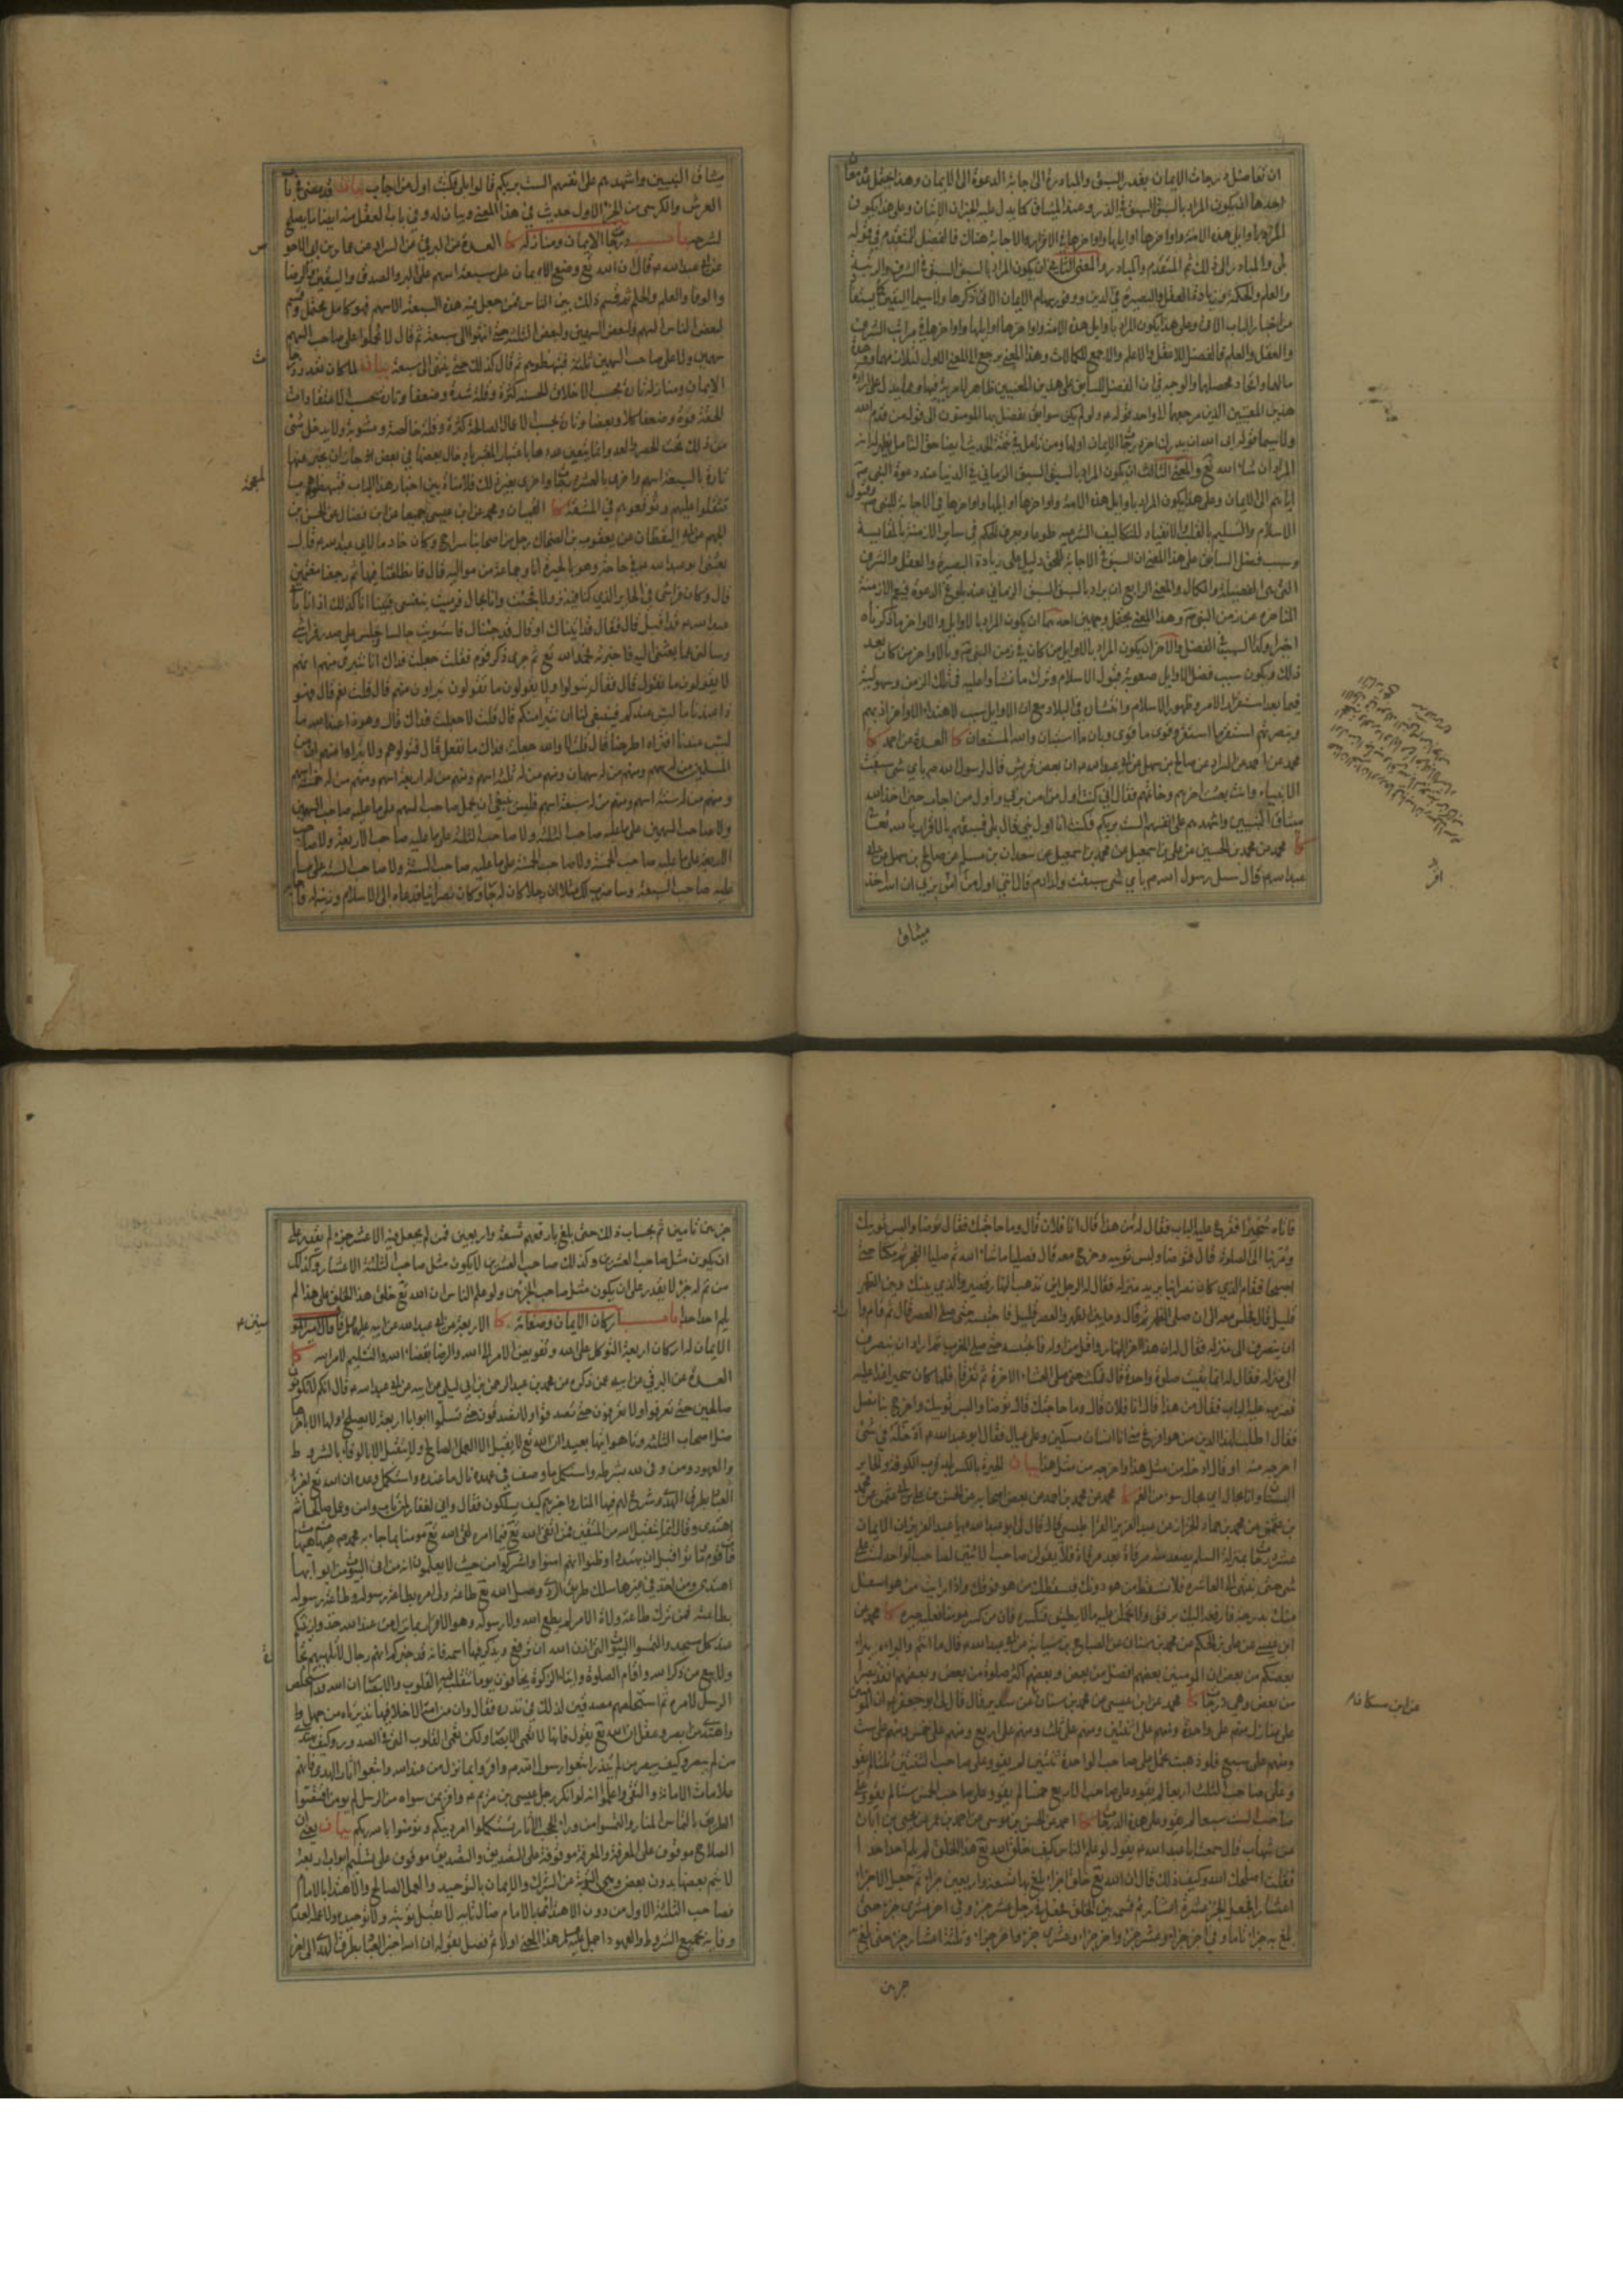 ان تفاضل درجات الايمان بقدر السبق والمبادرة الى اجابة الدعوة الى الايمان وهذا يحتمل معان
احدها ان يكون المراد بالسبق السبق في الذر وعند الميثاق كما يدل عليه الخبران الاتيان وعلى هذا يكون
المراد باوايل هذه الامة واواخرها اوايلها واواخرها في الاقرار والاجابة هناك فالفضل للمتقدم في قوله
بلى والمبادر الى ذلك ثم المتقدم والمبادر والمعنى الثاني ان يكون المراد بالسبق السبق في الشرف والرتبة
والعلم والحكمة وزيادة العقل والبصيرة في الدين ووفور سهام الايمان الاتي ذكرها ولا سيما اليقين كما يستفاد
من اخبار الباب الاتي وعلى هذا يكون المراد باوايل هذه الامة واواخرها اوايلها واواخرها في مراتب الشرف
والعقل والعلم فالفضل للاعقل والاعلم والاجمع للكمالات وهذا المعنى يرجع الى المعنى الاول لتلازمهما ووحدة
مالهما واتحاد محصلهما والوجه في ان الفضل للسابق على هذين المعنيين ظاهر لا مرية فيه ومما يدل على ارادة
هذين المعنيين الذين مرجعهما الى واحد قوله ولو لم يكن سوابق يفضل بها المؤمنون الى قوله من قدم الله
ولا سيما قوله ابى الله ان يدرك اخر درجات الايمان اولها ومن تامل في تتمة الحديث ايضا حق التامل يظهر له انه
المراد ان شاء الله تع والمعنى الثالث ان يكون المراد بالسبق السبق الزماني في الدنيا عند دعوة النبي ص
اياهم الى الايمان وعلى هذا يكون المراد باوايل هذه الامة واواخرها اوايلها واواخرها في الاجابة للنبي ص وقبول
الاسلام والتسليم بالقلب والانقياد للتكاليف الشرعية طوعا ويعرف الحكم في ساير الازمنة بالمقايسة
وسبب فضل السابق على هذا المعنى ان السبق في الاجابة للحق دليل على زيادة البصيرة والعقل والشرف
التي هي الفضيلة والكمال والمعنى الرابع ان يراد بالسبق السبق الزماني عند بلوغ الدعوة فيعم الازمنة
المتاخرة عن زمن النبي ص وهذا المعنى يحتمل وجهين احدهما ان يكون المراد بالاوايل والاواخر ما ذكرناه
اخيرا وكذا السبب في الفضل والاخر ان يكون المراد بالاوايل من كان في زمن النبي ص وبالاواخر من كان بعد
ذلك ويكون سبب فضل الاوايل صعوبة قبول الاسلام وترك ما نشاوا عليه في ذلك الزمن وسهولته
فيما بعد استقرار الامر وظهور الاسلام وانتشاره في البلاد مع ان الاوايل سبب لاهتداء الاواخر اذ بهم
وبنصرتهم استقر ما استقر وقوى ما قوى وبان ما استبان والله المستعان كا العدة عن احمد كا
محمد عن احمد عن السراد عن صالح بن سهل عن ابي عبد الله ع ان بعض قريش قال لرسول الله ص باي شئ سبقت
الانبياء وانت بعثت اخرهم وخاتمهم فقال اني كنت اول من امن بربي واول من اجاب حين اخذ الله
ميثاق النبيين واشهدهم على انفسهم الست بربكم فكنت انا اول نبي قال بلى فسبقتهم بالاقرار بالله تعا
كا محمد عن محمد بن الحسين عن علي بن اسمعيل عن محمد بن اسمعيل عن سعدان بن مسلم عن صالح بن سهل عن ابي
عبد الله ع قال سئل رسول الله ص باي شئ سبقت ولد ادم قال انني اول من اقر بربي ان الله اخذ
ميثاق
ميثاق النبيين واشهدهم على انفسهم الست بربكم قالوا بلى فكنت اول من اجاب بيان قد مضى في باب
العرش والكرسي من الجزء الاول حديث في هذا المعنى وبيان له وفي باب العقل منه ايضا ما يصلح
لشرحه باب درجات الايمان ومنازله كا العدة عن البرقي عن السراد عن عمار بن ابي الاحوص
عن ابي عبد الله ع قال ان الله تع وضع الايمان على سبعة اسهم على البر والصدق واليقين والرضا
والوفا والعلم والحلم ثم قسم ذلك بين الناس فمن جعل فيه هذه السبعة الاسهم فهو كامل محتمل وقسم
لبعض الناس السهم ولبعض السهمين ولبعض الثلثة حتى انتهوا الى سبعة ثم قال لا تحملوا على صاحب السهم
سهمين ولا على صاحب السهمين ثلثة فتبهظوهم ثم قال كذلك حتى ينتهى الى سبعة بيان لما كان تعدد درجات
الايمان ومنازله تارة بحسب الاخلاق الحسنة كثرة وقلة وشدة وضعفا وتارة بحسب الاعتقادات
الحقة قوة وضعفا كلا وبعضا وتارة بحسب الاعمال الصالحة كثرة وقلة خالصة ومشوبة ولا يدخل شئ
من ذلك تحت الحصر والعد وانما يتعين عددها باعتبار المعتبر بادخال بعضها في بعض جاز ان يعبر عنها
تارة بالسبعة اسهم واخرى بالعشر درجات واخرى بغير ذلك فلا منافاة بين اخبار هذا الباب فتبهظوهم
تثقلوا عليهم وتوقعوهم في المشقة كا القميان ومحمد عن ابن عيسى جميعا عن ابن فضال عن الحسن بن
الجهم عن ابي اليقظان عن يعقوب بن الضحاك عن رجل من اصحابنا سراج وكان خادما لابي عبد الله ع قال
بعثني ابو عبد الله ع في حاجة وهو بالحيرة انا وجماعة من مواليه قال فانطلقنا فيها ثم رجعنا مغتمين
قال وكان فراشي في الحاير الذي كنا فيه نزولا فجئت وانا بحال فرميت بنفسي فبينا انا كذلك اذا انا بابي
عبد الله ع قد اقبل قال فقال قد اتيناك او قال قد جئناك فاستويت جالسا وجلس على صدر فراشي
وسالني عما بعثني اليه فاخبرته فحمد الله تع ثم جرى ذكر قوم فقلت جعلت فداك انا نتبرى منهم انهم
لا يقولون ما نقول قال فقال يتولونا ولا يقولون ما تقولون تبراون منهم قال قلت نعم قال فهو
ذا عندنا ما ليس عندكم فينبغي لنا ان نتبرا منكم قال قلت لا جعلت فداك قال وهوذا عند الله ما
ليس عندنا افتراه اطرحنا قال قلت لا والله جعلت فداك ما نفعل قال فتولوهم ولا تبراوا منهم ان من
المسلمين من له سهم ومنهم من له سهمان ومنهم من له ثلثة اسهم ومنهم من له اربعة اسهم ومنهم من له خمسة اسهم
ومنهم من له ستة اسهم ومنهم من له سبعة اسهم فليس ينبغي ان يحمل صاحب السهم على ما عليه صاحب السهمين
ولا صاحب السهمين على ما عليه صاحب الثلثة ولا صاحب الثلثة على ما عليه صاحب الاربعة ولا صاحب
الاربعة على ما عليه صاحب الخمسة ولا صاحب الخمسة على ما عليه صاحب الستة ولا صاحب الستة على ما
عليه صاحب السبعة وساضرب لك مثلا ان رجلا كان له جار وكان نصرانيا فدعاه الى الاسلام وزينه له فاجابه
فاتاه سحيرا فقرع عليه الباب فقال له من هذا قال انا فلان قال وما حاجتك فقال توضا والبس ثوبيك
ومر بنا الى الصلوة قال فتوضا ولبس ثوبيه وخرج معه قال فصليا ما شاء الله ثم صليا الفجر ثم مكثا حتى
اصبحا فقام الذي كان نصرانيا يريد منزله فقال له الرجل اين تذهب النهار قصير والذي بينك وبين الظهر
قليل قال فجلس معه الى ان صلى الظهر ثم قال وما بين الظهر والعصر قليل فاحتبسه حتى صلى العصر قال ثم قام واراد
ان ينصرف الى منزله فقال له ان هذا اخر النهار واقل من اوله فاحتبسه حتى صلى المغرب ثم اراد ان ينصرف
الى منزله فقال له انما بقيت صلوة واحدة قال فمكث حتى صلى العشاء الاخرة ثم تفرقا فلما كان سحير اغدا عليه
فضرب عليه الباب فقال من هذا قال انا فلان قال وما حاجتك قال توضا والبس ثوبيك واخرج بنا فصل
فقال اطلب لهذا الدين من هو افرغ مني انا انسان مسكين وعلى عيال فقال ابو عبد الله ع ادخله في شئ
اخرجه منه او قال ادخله من مثل هذا واخرجه من مثل هذا بيان الحيرة بالكسر بلد قرب الكوفة والحاير
البستان وانا بحال اي بحال سوء من الغم كا محمد عن محمد بن احمد عن بعض اصحابه عن الحسن بن علي بن ابي عثمن عن محمد
بن عثمن عن محمد بن حماد الخزاز عن عبد العزيز القراطيسي قال قال لي ابو عبد الله ع يا عبد العزيز ان الايمان
عشر درجات بمنزلة السلم يصعد منه مرقاة بعد مرقاة فلا يقولن صاحب الاثنين لصاحب الواحد لست على
شئ حتى ينتهى الى العاشرة فلا تسقط من هو دونك فيسقطك من هو فوقك واذا رايت من هو اسفل
منك بدرجة فارفعه اليك برفق ولا تحملن عليه ما لا يطيق فتكسره فان من كسر مؤمنا فعليه جبره كا محمد عن
ابن عيسى عن علي بن الحكم عن محمد بن سنان عن الصباح بن سيابة عن ابي عبد الله ع قال ما انتم والبراءة يبرا
بعضكم من بعض ان المؤمنين بعضهم افضل من بعض وبعضهم اكثر صلوة من بعض وبعضهم انفذ بصرا
من بعض وهي درجات كا محمد عن ابن عيسى عن محمد بن سنان عن سدير قال قال لي ابو جعفر ع ان المؤمنين
على منازل منهم على واحدة ومنهم على اثنتين ومنهم على ثلث ومنهم على اربع ومنهم على خمس ومنهم على ست
ومنهم على سبع فلو ذهبت تحمل على صاحب الواحدة ثنتين لم يقو وعلى صاحب الثنتين ثلثا لم يقو
وعلى صاحب الثلث اربعا لم يقو وعلى صاحب الاربع خمسا لم يقو وعلى صاحب الخمس ستا لم يقو وعلى
صاحب الست سبعا لم يقو وعلى هذه الدرجات كا احمد عن الحسن بن موسى عن احمد بن عمر عن يحيى بن ابان
عن شهاب قال سمعت ابا عبد الله ع يقول لو علم الناس كيف خلق الله تع هذا الخلق لم يلم احد احدا
فقلت اصلحك الله وكيف ذلك قال ان الله تع خلق اجزاء بلغ بها تسعة واربعين جزءا ثم جعل الاجزاء
اعشارا فجعل الجزء عشرة اعشار ثم قسمه بين الخلق فجعل في رجل عشر جزء وفي اخر عشري جزء حتى
بلغ به جزءا تاما وفي اخر جزءا وعشر جزء واخر جزءا وعشري جزء واخر جزءا وثلثة اعشار جزء حتى بلغ به
جزءين
عن ابن مسكان
جزءين تامين ثم بحساب ذلك حتى بلغ بارفعهم تسعة واربعين فمن لم يجعل فيه الا عشر جزء لم يقدر على
ان يكون مثل صاحب العشرين وكذلك صاحب العشرين لا يكون مثل صاحب الثلثة الاعشار وكذلك
من تم له جزء لا يقدر على ان يكون مثل صاحب الجزءين ولو علم الناس ان الله تع خلق هذا الخلق على هذا لم
يلم احد احدا باب اركان الايمان وصفاته كا الاربعة عن ابي عبد الله عن ابيه عليهما السلم قال قال امير المؤمنين ع
الايمان له اركان اربعة التوكل على الله وتفويض الامر الى الله والرضا بقضاء الله والتسليم لامر الله كا
العدة عن البرقي عن ابيه عمن ذكره عن محمد بن عبد الرحمن بن ابي ليلى عن ابيه عن ابي عبد الله ع قال انكم لا تكونون
صالحين حتى تعرفوا ولا تعرفون حتى تصدقوا ولا تصدقون حتى تسلموا ابوابا اربعة لا يصلح اولها الا باخرها
ضل اصحاب الثلثة وتاهوا تيها بعيدا ان الله تع لا يقبل الا العمل الصالح ولا يتقبل الا بالوفاء بالشروط
والعهود ومن وفى لله بشرطه واستكمل ما وصف في عهده نال ما عنده واستكمل وعده ان الله تع اخبر
العباد بطرق الهدى وشرع لهم فيها المنار واخبرهم كيف يسلكون فقال واني لغفار لمن تاب وامن وعمل صالحا ثم
اهتدى وقال انما يتقبل الله من المتقين فمن اتقى الله تع فيما امره لقى الله تع مؤمنا بما جاء به محمد ص هيهات هيهات
فات قوم ماتوا قبل ان يهتدوا وظنوا انهم امنوا واشركوا من حيث لا يعلمون انه من اتى البيوت من ابوابها
اهتدى ومن اخذ في غيرها سلك طريق الردى وصل الله تع طاعة ولي امره بطاعة رسوله وطاعة رسوله
بطاعته فمن ترك طاعة ولاة الامر لم يطع الله ولا رسوله وهو الاقرار بما نزل من عند الله خذوا زينتكم
عند كل مسجد والتمسوا البيوت التي اذن الله ان ترفع ويذكر فيها اسمه فانه قد خبركم انهم رجال لا تلهيهم تجارة
ولا بيع عن ذكر الله واقام الصلوة وايتاء الزكوة يخافون يوما تتقلب فيه القلوب والابصار ان الله قد استخلص
الرسل لامره ثم استخلصهم مصدقين لذلك في نذره فقال وان من امة الا خلا فيها نذير تاه من جهل
واهتدى من ابصر وعقل ان الله تع يقول فانها لا تعمى الابصار ولكن تعمى القلوب التي في الصدور وكيف يهتدى
من لم يبصر وكيف يبصر من لم ينذر اتبعوا رسول الله ص واقروا بما نزل من عند الله واتبعوا اثار الهدى فانهم
علامات الامانة والتقى واعلموا انه لو انكر رجل عيسى بن مريم ع واقر بمن سواه من الرسل لم يؤمن اقتصوا
الطريق بالتماس المنار والتمسوا من وراء الحجب الاثار تستكملوا امر دينكم وتؤمنوا بالله ربكم بيان يعني ان
الصلاح موقوف على المعرفة والمعرفة موقوفة على التصديق والتصديق موقوف على تسليم ابواب اربعة
لا يتم بعضها بدون بعض وهي التوبة عن الشرك والايمان بالتوحيد والعمل الصالح والاهتداء بالامام
فصاحب الثلثة الاول من دون الاهتداء بالامام ضال تايه لا يقبل توبته ولا توحيده ولا عمله لعدم
وفائه بجميع الشروط والعهود اجمل ع هذا المعنى اولا ثم فصل بقوله ان الله اخبر العباد بطرق الهدى الى اخر